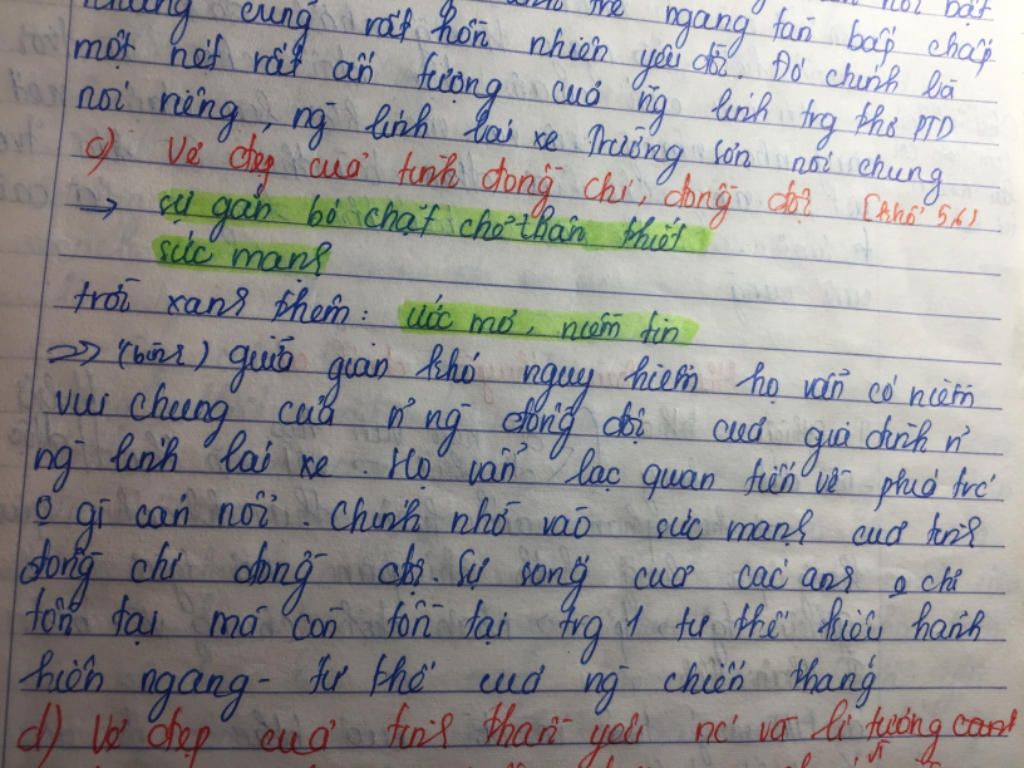 cũng rất hồn nhiên yêu đời. Đó chính là
một nét rất ấn tượng của ng lính trg thơ PTD
nói riêng, ng lính lái xe Trường Sơn nói chung
c) Vẻ đẹp của tình đồng chí, đồng đội (khổ 5,6)
→ sự gắn bó chặt chẽ thân thiết
sức mạnh
trời xanh thêm: ước mơ, niềm tin
=> (bình) giữa gian khó nguy hiểm họ vẫn có niềm
vui chung của n~ ng đồng đội của gia đình n~
ng lính lái xe. Họ vẫn lạc quan tiến về phía trc
0 gì cản nổi. Chính nhờ vào sức mạnh của tình
đồng chí đồng đội. Sự sống của các anh 0 chỉ
tồn tại mà còn tồn tại trg 1 tư thế kiêu hãnh
hiên ngang - tư thế của ng chiến thắng
d) Vẻ đẹp của tinh thần yêu nc và lí tưởng